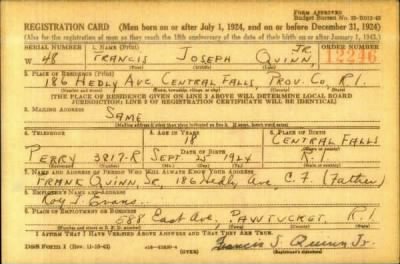 FORM APPROVED
REGISTRATION CARD (Men born on or after July 1, 1924, and on or before December 31, 1924)
(Also for the registration of men as they reach the 18th anniversary of the date of their birth on or after January 1, 1943.)
SERIAL NUMBER 1. NAME (Print) ORDER NUMBER
W 48 FRANCIS JOSEPH QUINN, JR. 12246
2. PLACE OF RESIDENCE (Print)
186 HEDLY AVE CENTRAL FALLS PROV. CO. R.I.
[THE PLACE OF RESIDENCE GIVEN ON LINE 2 ABOVE WILL DETERMINE LOCAL BOARD
JURISDICTION; LINE 2 OF REGISTRATION CERTIFICATE WILL BE IDENTICAL]
3. MAILING ADDRESS
SAME
4. TELEPHONE 5. AGE IN YEARS 6. PLACE OF BIRTH
18 CENTRAL FALLS
DATE OF BIRTH
PERRY 3817-R SEPT 25 1924 R.I.
7. NAME AND ADDRESS OF PERSON WHO WILL ALWAYS KNOW YOUR ADDRESS
FRANK QUINN, SR, 186 Hedly Ave, C.F (Father)
8. EMPLOYER'S NAME AND ADDRESS
Roy J. Evans
9. PLACE OF EMPLOYMENT OR BUSINESS
588 East Ave, PAWTUCKET, R.I.
I AFFIRM THAT I HAVE VERIFIED ABOVE ANSWERS AND THAT THEY ARE TRUE.
DSS Form 1 (OVER) Francis J. Quinn Jr.